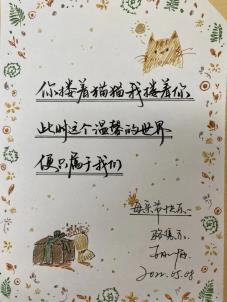 你搂着猫猫我搂着你
此时这个温馨的世界
便只属于我们
母亲节快乐
2022.05.08